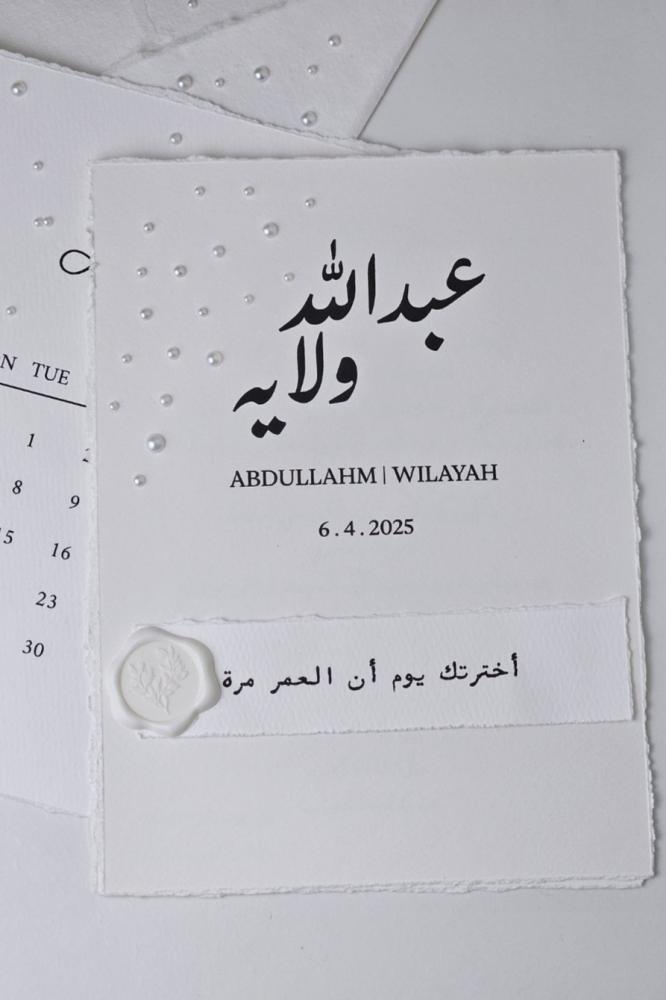 عبدالله
ولايه
ABDULLAHM | WILAYAH
6.4.2025
أخترتك يوم أن العمر مرة
N TUE
1 2
8 9
15 16
23
30